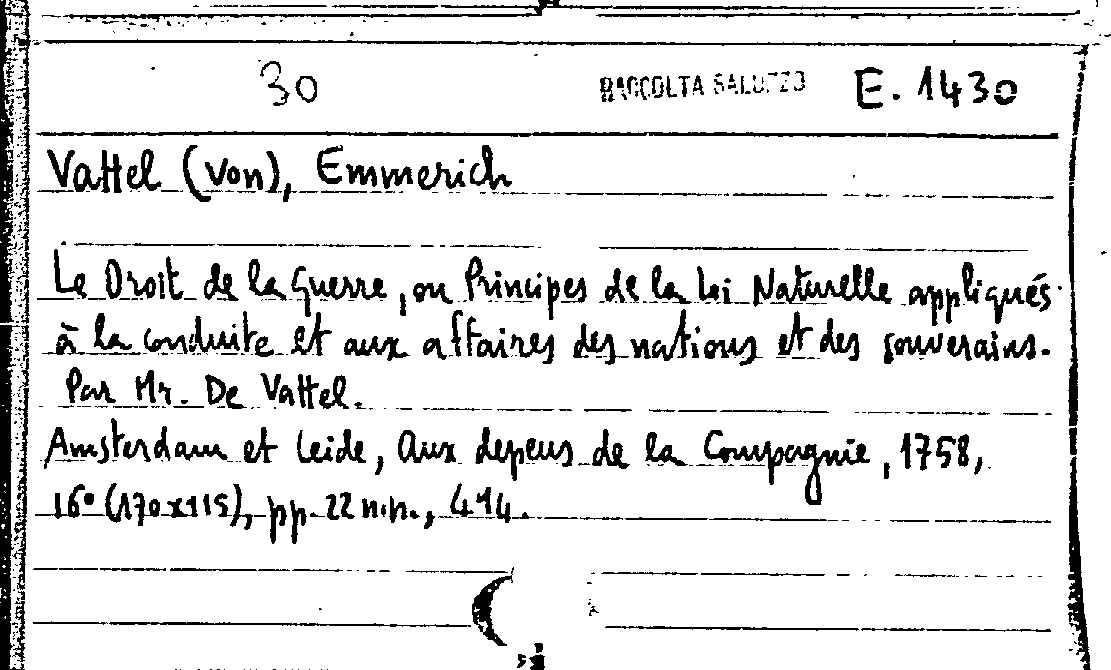 30 RACCOLTA SALUZZO E. 1430
Vattel (von), Emmerich
Le Droit de la Guerre, ou Principes de la Loi Naturelle appliqués
à la conduite et aux affaires des nations et des souverains.
Par Mr. De Vattel.
Amsterdam et Leide, Aux depens de la Compagnie, 1758,
16° (170x115), pp. 22 n.n., 414.